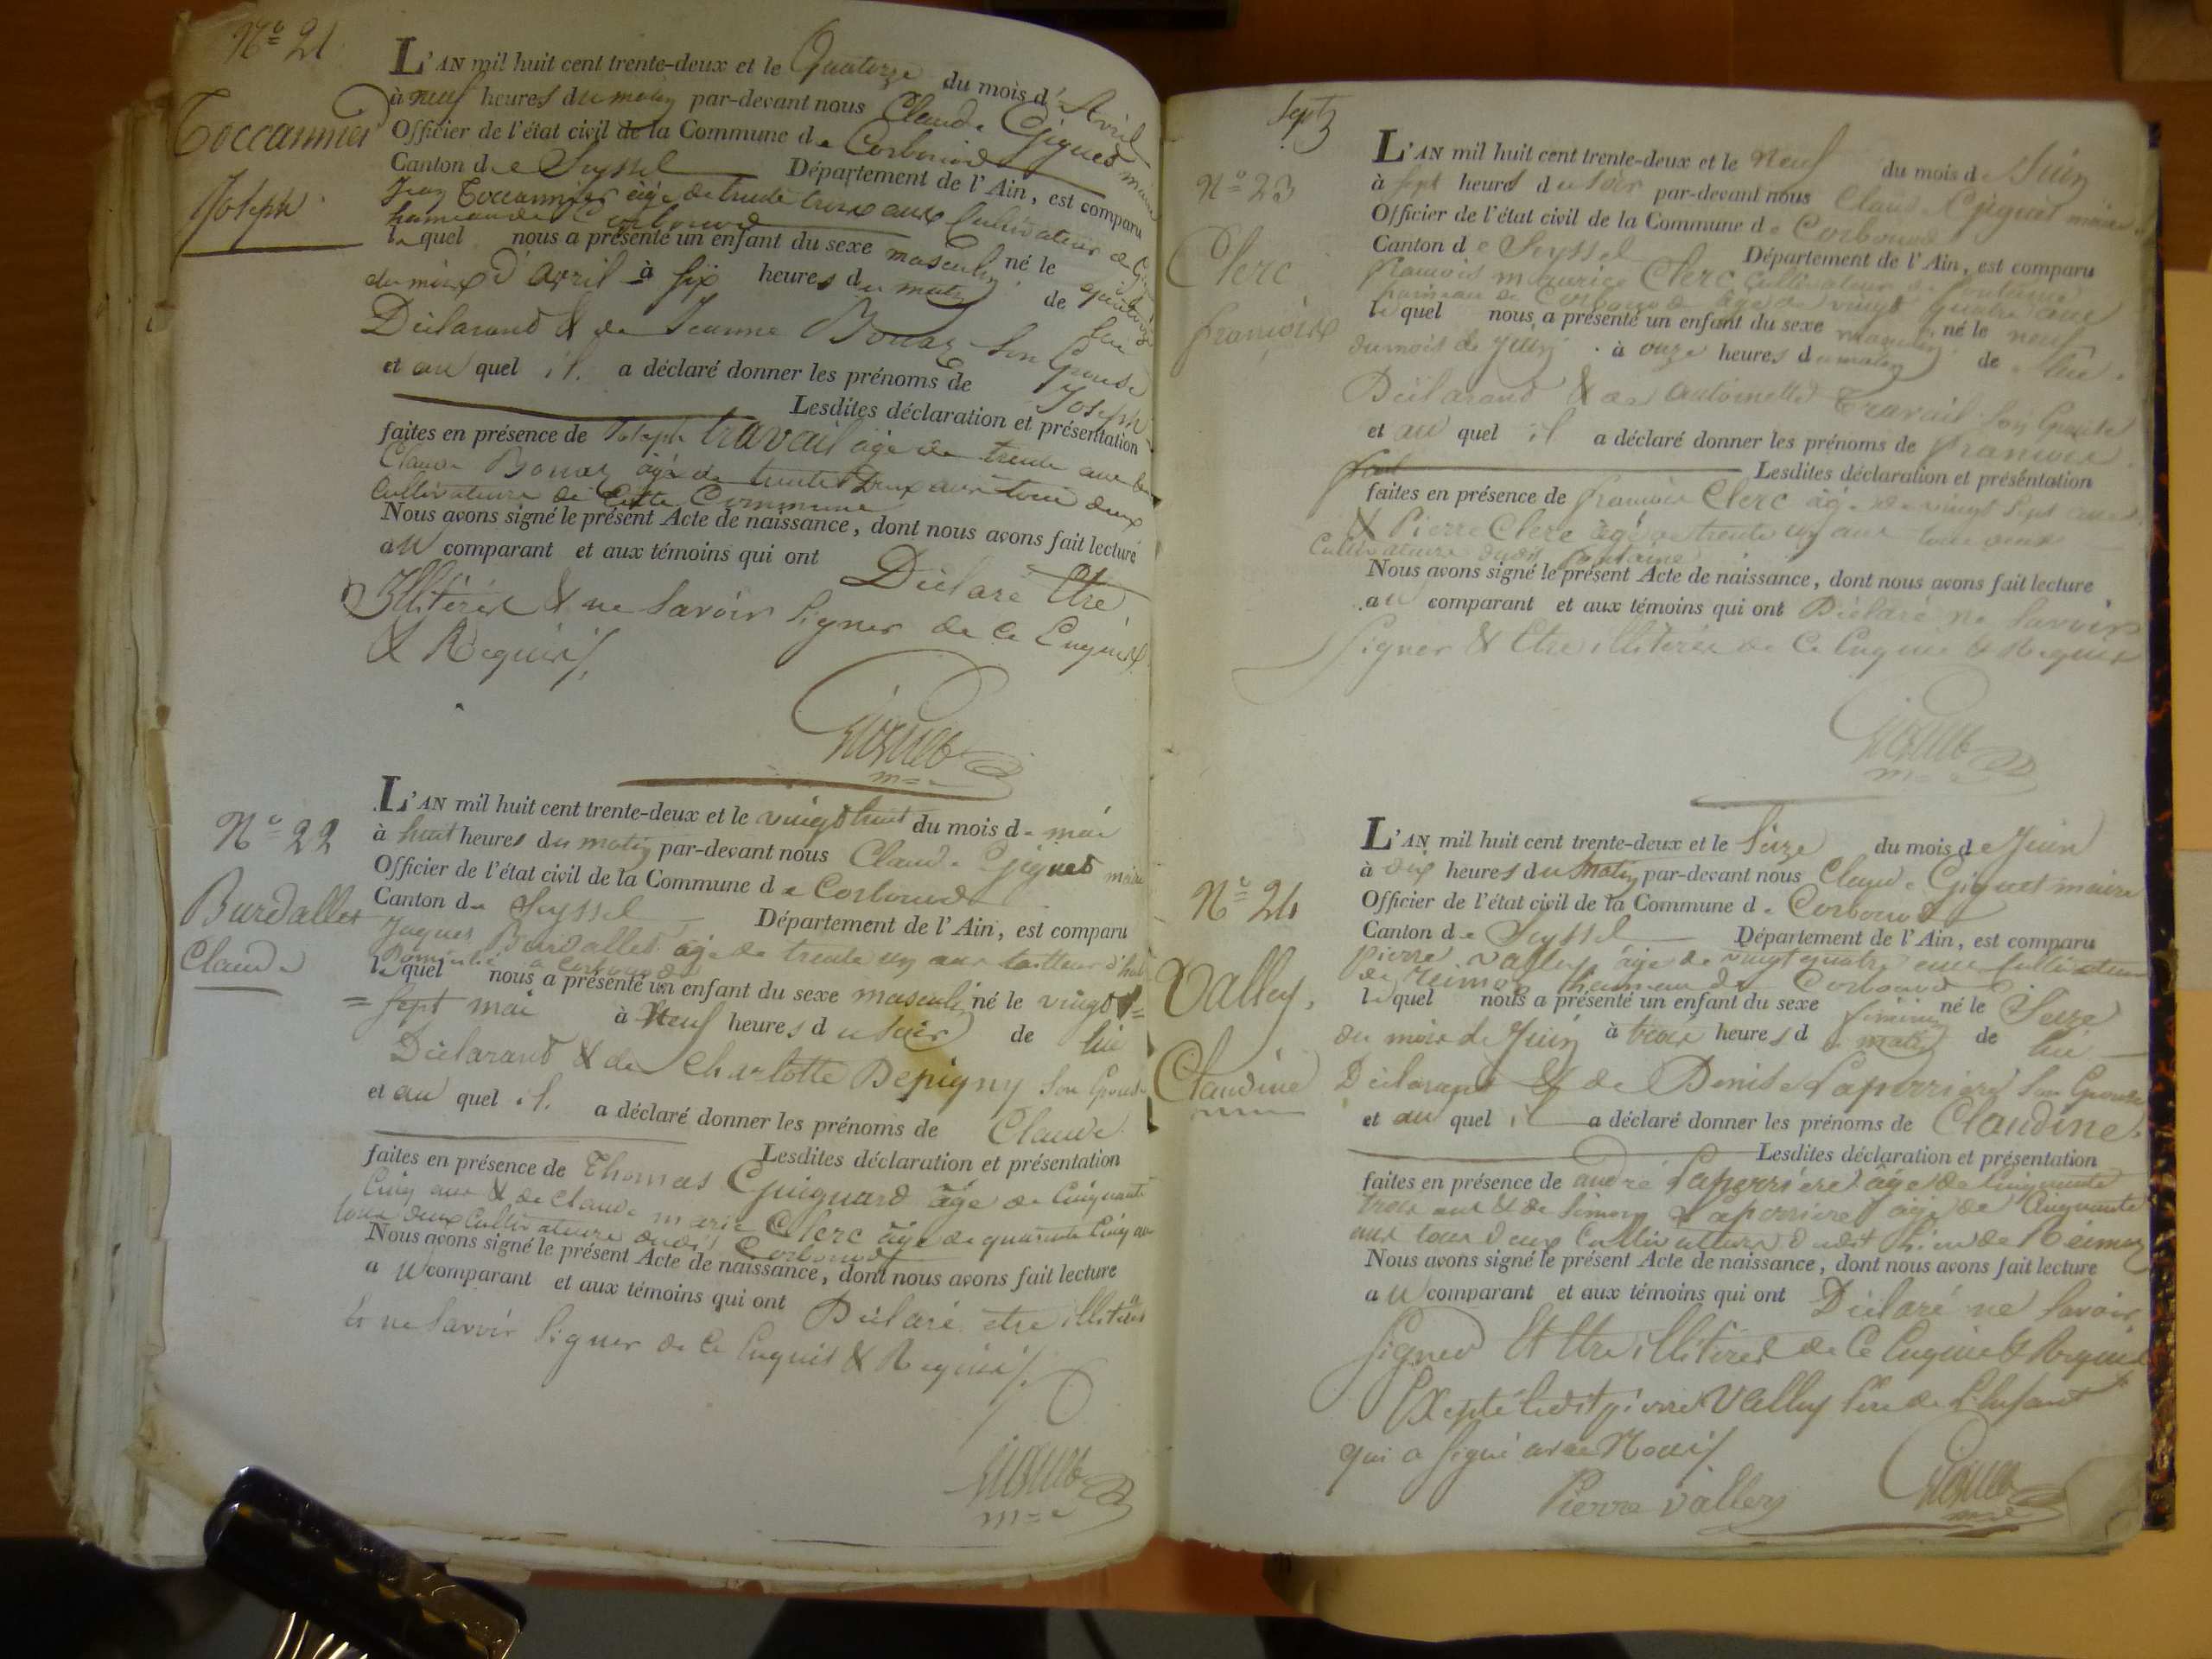 N° 21
Toccanier
Joseph
L'AN mil huit cent trente-deux et le Quatorze du mois d'Avril
à neuf heures du matin par-devant nous Claude Giguet maire
Officier de l'état civil de la Commune de Corbonod
Canton de Seyssel Département de l'Ain, est comparu
Jean Toccanier âgé de trente trois ans Cultivateur de
hameau de Corbonod
lequel nous a présenté un enfant du sexe masculin né le quatorze
du mois d'avril à six heures du matin de lui
Déclarand & de Jeanne Bonaz son Epouse
et au quel il a déclaré donner les prénoms de Joseph
Lesdites déclaration et présentation
faites en présence de Joseph travail âgé de trente ans &
Claude Bonaz âgé de trente deux ans tous deux
Cultivateurs de Cette Commune
Nous avons signé le présent Acte de naissance, dont nous avons fait lecture
au comparant et aux témoins qui ont Déclaré Etre
Illiterés & ne savoir signer de ce Enquis
& Requis
Giguet
m=e
N° 22
Burdallet
Claude
L'AN mil huit cent trente-deux et le vingt huit du mois de mai
à huit heures du matin par-devant nous Claude Giguet maire
Officier de l'état civil de la Commune de Corbonod
Canton de Seyssel Département de l'Ain, est comparu
Jaques Burdallet âgé de trente un ans tailleur d'hab
Domicilié à Corbonod
lequel nous a présenté un enfant du sexe masculin né le vingt=
=sept mai à Neuf heures du soir de lui
Déclarand & de Charlotte Depigny son Epouse
et au quel il a déclaré donner les prénoms de Claude
Lesdites déclaration et présentation
faites en présence de Thomas Guignard âgé de Cinquante
Cinq ans & de Claude marie Clerc âgé de quarante Cinq ans
tous deux Cultivateurs dudit Corbonod
Nous avons signé le présent Acte de naissance, dont nous avons fait lecture
au comparant et aux témoins qui ont Déclaré etre illiterés
& ne savoir signer de ce Enquis & Requis
Giguet
m=e
Sept
N° 23
Clerc
françois
L'AN mil huit cent trente-deux et le Neuf du mois de Juin
à sept heures du soir par-devant nous Claude Giguet maire
Officier de l'état civil de la Commune de Corbonod
Canton de Seyssel Département de l'Ain, est comparu
françois maurice Clerc Cultivateur de fontaine
hameau de Corbonod âgé de vingt quatre ans
lequel nous a présenté un enfant du sexe masculin né le neuf
du mois de Juin à onze heures du matin de lui
Déclarand & de antoinette Travail son Epouse
et au quel il a déclaré donner les prénoms de françois
Lesdites déclaration et présentation
faites en présence de françois Clerc âgé de vingt sept ans
& Pierre Clerc âgé de trente un ans tous deux
Cultivateurs dudit fontaine
Nous avons signé le présent Acte de naissance, dont nous avons fait lecture
au comparant et aux témoins qui ont Déclaré ne savoir
signer & Etre illiterés de Ce Enquis & Requis
Giguet
m=e
N° 24
Valley
Claudine
L'AN mil huit cent trente-deux et le Seize du mois de Juin
à dix heures du matin par-devant nous Claude Giguet maire
Officier de l'état civil de la Commune de Corbonod
Canton de Seyssel Département de l'Ain, est comparu
pierre Valley âgé de vingt quatre ans Cultivateur
de Reimon hameau de Corbonod
lequel nous a présenté un enfant du sexe féminin né le Seize
du mois de Juin à trois heures du matin de lui
Déclarant & de Denise Laperriere son Epouse
et au quel il a déclaré donner les prénoms de Claudine.
Lesdites déclaration et présentation
faites en présence de andré Laperriere âgé de Cinquante
trois ans & de Simon Laperriere âgé de Cinquante
ans tous deux Cultivateurs dudit lieu de Reimon
Nous avons signé le présent Acte de naissance, dont nous avons fait lecture
au comparant et aux témoins qui ont Déclaré ne savoir
signer Et Etre illiterés de Ce Enquis & Requis
Excepté ledit pierre Valley Pere de L'Enfant
qui a signé avec Nous
Pierre valley
Giguet
m=e